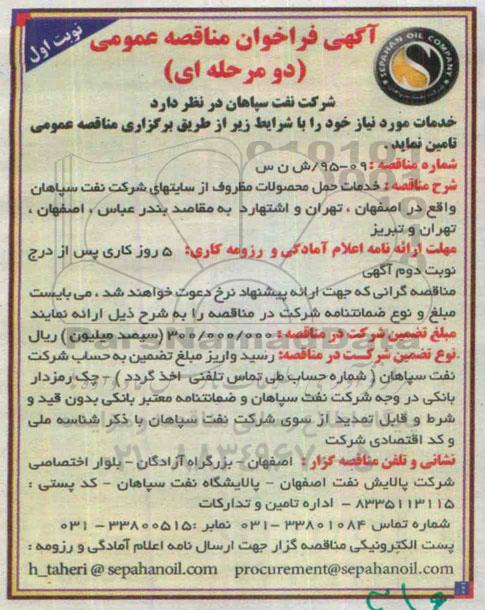 نوبت اول
SEPAHAN OIL COMPANY
شرکت نفت سپاهان
آگهی فراخوان مناقصه عمومی
(دو مرحله ای)
شرکت نفت سپاهان در نظر دارد
خدمات مورد نیاز خود را با شرایط زیر از طریق برگزاری مناقصه عمومی
تامین نماید.
شماره مناقصه: ۰۹-۹۵/ش ن س
شرح مناقصه: خدمات حمل محصولات مظروف از سایتهای شرکت نفت سپاهان
واقع در اصفهان ، تهران و اشتهارد به مقاصد بندر عباس ، اصفهان ،
تهران و تبریز
مهلت ارائه نامه اعلام آمادگی و رزومه کاری: ۵ روز کاری پس از درج
نوبت دوم آگهی
مناقصه گرانی که جهت ارائه پیشنهاد نرخ دعوت خواهند شد ، می بایست
مبلغ و نوع ضمانتنامه شرکت در مناقصه را به شرح ذیل ارائه نمایند
مبلغ تضمین شرکت در مناقصه: ۳۰۰/۰۰۰/۰۰۰ (سیصد میلیون) ریال
نوع تضمین شرکت در مناقصه: رسید واریز مبلغ تضمین به حساب شرکت
نفت سپاهان (شماره حساب طی تماس تلفنی اخذ گردد) - چک رمزدار
بانکی در وجه شرکت نفت سپاهان و ضمانتنامه معتبر بانکی بدون قید و
شرط و قابل تمدید از سوی شرکت نفت سپاهان با ذکر شناسه ملی
و کد اقتصادی شرکت
نشانی و تلفن مناقصه گزار: اصفهان - بزرگراه آزادگان - بلوار اختصاصی
شرکت پالایش نفت اصفهان - پالایشگاه نفت سپاهان - کد پستی :
۸۳۳۵۱۱۳۱۱۵ - اداره تامین و تدارکات
شماره تماس ۳۳۸۰۱۰۸۴-۰۳۱ نمابر: ۳۳۸۰۰۵۱۵ - ۰۳۱
پست الکترونیکی مناقصه گزار جهت ارسال نامه اعلام آمادگی و رزومه :
h_taheri@sepahanoil.com procurement@sepahanoil.com